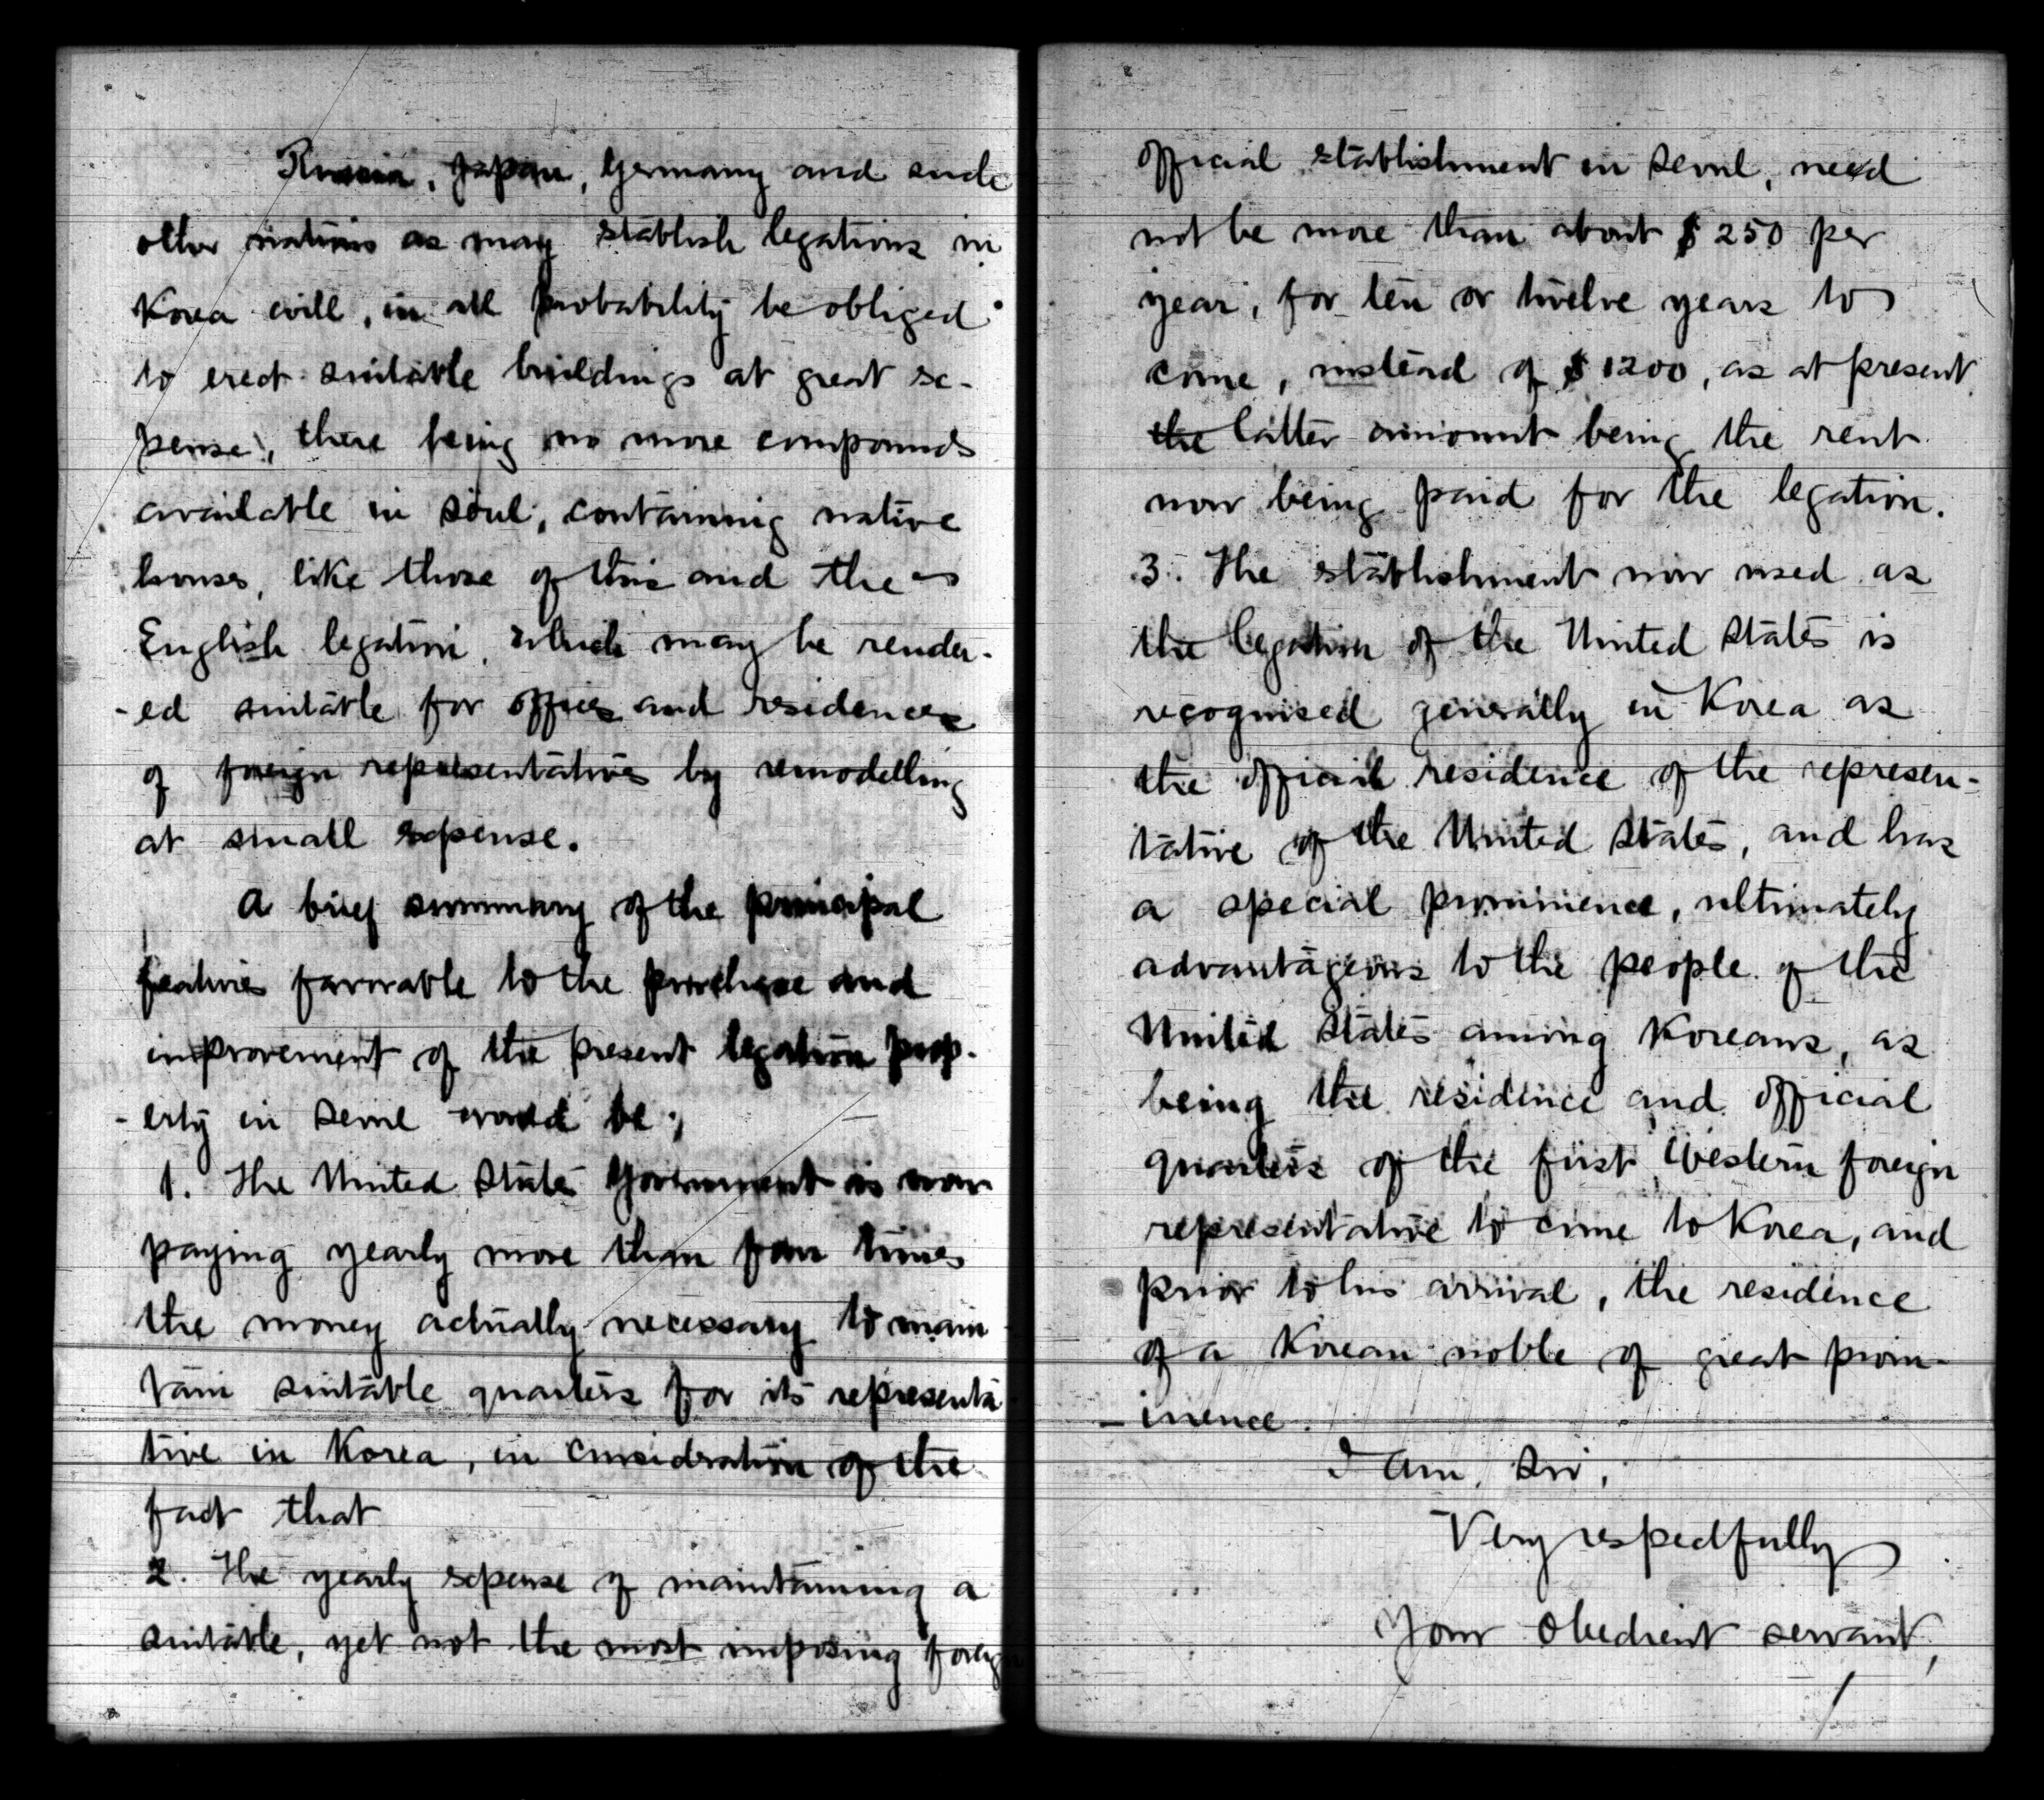 Russia, Japan, Germany and such
other nations as may establish legations in
Korea will, in all probability be obliged
to erect suitable buildings at great ex-
pense, there being no more compounds
available in Söul, containing native
houses, like those of this and the
English legation, which may be render-
-ed suitable for offices and residences
of foreign representatives by remodelling
at small expense.
A brief summary of the principal
features favorable to the purchase and
improvement of the present legation prop-
-erty in Seoul would be;
1. The United States Government is now
paying yearly more than four times
the money actually necessary to main
tain suitable quarters for its representa
tive in Korea, in consideration of the
fact that
2. The yearly expense of maintaining a
suitable, yet not the most imposing foreign
official establishment in Seoul, need
not be more than about $250 per
year, for ten or twelve years to
come, instead of $1200, as at present
the latter amount being the rent
now being paid for the legation.
3. The establishment now used as
the legation of the United States is
recognised generally in Korea as
the official residence of the represen-
tative of the United States, and has
a special prominence, ultimately
advantageous to the people of the
United States among Koreans, as
being the residence and official
quarters of the first Western foreign
representative to come to Korea, and
prior to his arrival, the residence
of a Korean noble of great prom-
-inence.
I am, Sir,
Very respectfully
Your obedient servant,